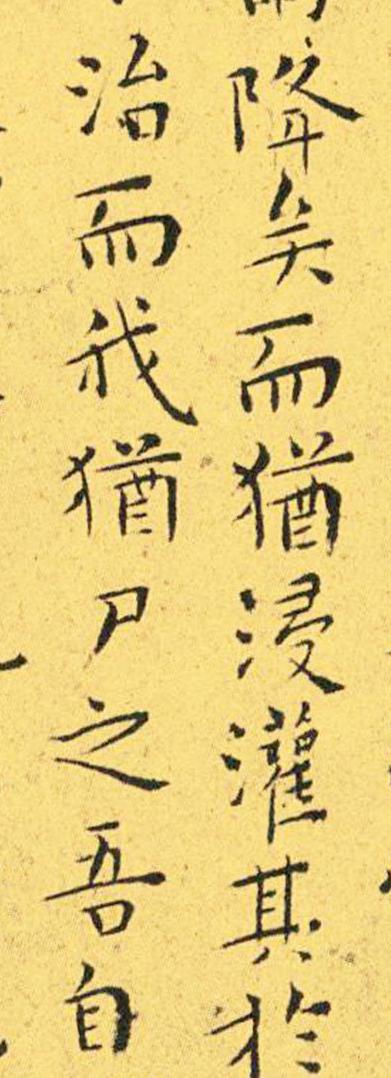 降矣而猶浸灌其於
治而我猶尸之吾自